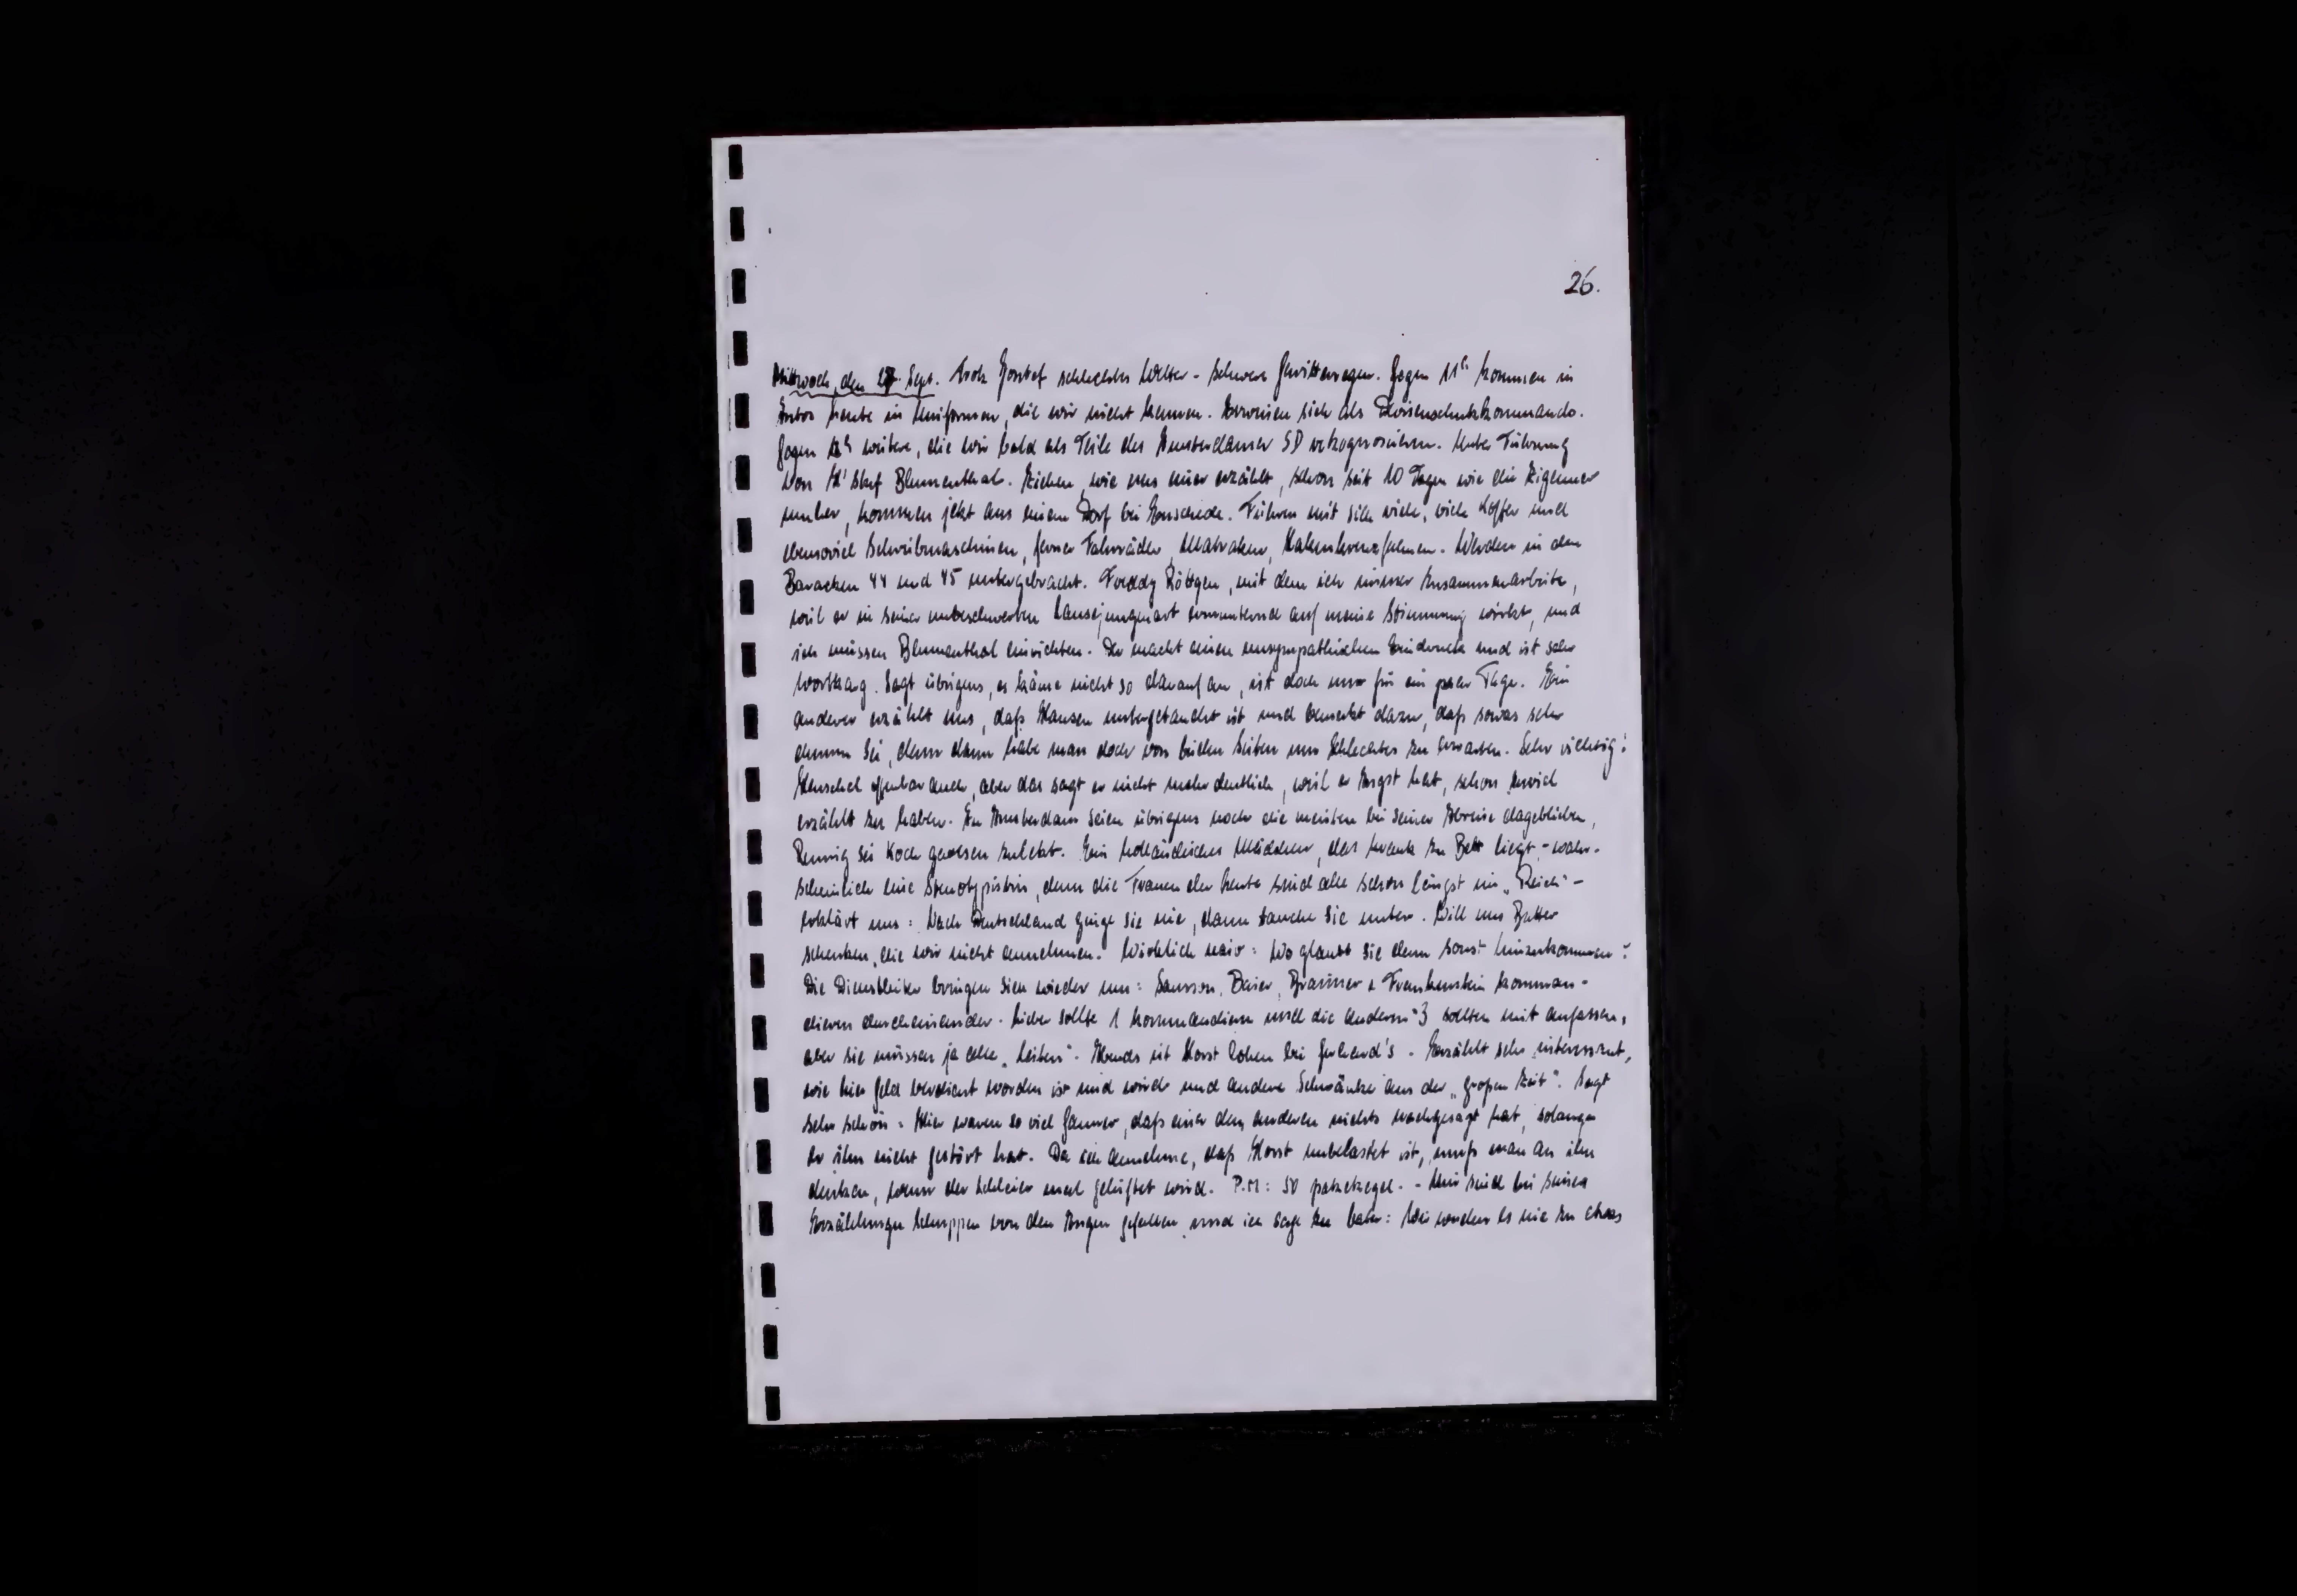 26.
Mittwoch, den 27. Sept. Trotz schlechtes Wetter - schwere Gewitterregen. Gegen 11h kommen in
Autos Leute in Uniformen, die wir nicht kennen. Erweisen sich als Devisenschutzkommando.
Gegen 12h weitere, die wir bald als Teile des Amsterdamer SD rekognoszieren. Unter Führung
von Blumenthal. Ziehen, wie uns einer erzählt, schon seit 10 Tagen wie die Zigeuner
umher, kommen jetzt aus einem Dorf bei Enschede. Führen mit sich viele, viele Koffer und
ebensoviel Schreibmaschinen, ferner Fahrräder, Matratzen, Hakenkreuzfahnen. Werden in den
Baracken 44 und 45 untergebracht. Freddy Röttgen, mit dem ich immer zusammenarbeite,
weil er in seiner unbeschwerten Lausejungenart ermunternd auf meine Stimmung wirkt, und
ich müssen Blumenthal einrichten. Der macht einen unsympathischen Eindruck und ist sehr
wortkarg. Sagt übrigens, es käme nicht so darauf an, ist doch nur für ein paar Tage. Ein
anderer erzählt uns, daß Hansen untergetaucht ist und bemerkt dazu, daß sowas sehr
dumm sei, denn dann habe man doch von beiden Seiten nur Schlechtes zu erwarten. Sehr richtig!
Henschel offenbar auch, aber das sagt er nicht mehr deutlich, weil er Angst hat, schon zuviel
erzählt zu haben. In Amsterdam seien übrigens noch die meisten bei seiner Abreise dageblieben,
sei Koch gewesen zuletzt. Ein holländisches Mädchen, das krank zu Bett liegt - wahr-
scheinlich eine Stenotypistin, denn die Frauen der Leute sind alle schon längst im „Reich" -
erklärt uns: Nach Deutschland ginge sie nie, dann tauche sie unter. Will uns Butter
schenken, die wir nicht annehmen. Wirklich naiv: Wo glaubt sie denn sonst hinzukommen?
Die Dienstleiter bringen sich wieder um: Samson, Baier, Brauner & Frankenstein komman-
dieren durcheinander. Lieber sollte 1 kommandieren und die anderen 3 sollten mit anfassen,
aber sie müssen ja alle „leiten". Abends ist Horst Cohen bei Gerhard's. Erzählt sehr interessant,
wie hier Geld verdient worden ist und wird und andere Schwänke aus der „großen Zeit". Sagt
sehr schön: Hier waren so viel Gauner, daß einer dem anderen nichts nachgesagt hat, solange
er ihn nicht gestört hat. Da ich annehme, daß Horst unbelastet ist, muß man an ihn
denken, wenn der Schleier mal gelüftet wird. P.M.: 50 - Mir sind bei seinen
Erzählungen Schuppen von den Augen gefallen und ich sage zu Vater: Wir werden es nie zu etwas